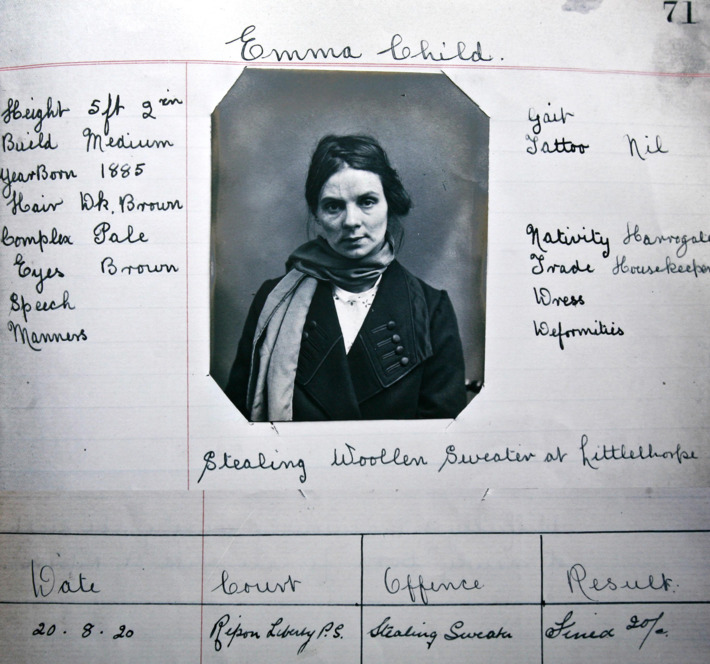 71
Emma Child.
Height 5ft 2in
Build Medium
Year Born 1885
Hair Dk. Brown
Complex Pale
Eyes Brown
Speech
Manners
Gait
Tattoo Nil
Nativity Harrogate
Trade Housekeeper
Dress
Deformities
Stealing Woollen Sweater at Littlethorpe
Date Court Offence Result.
20.8.20 Ripon Liberty P.S. Stealing Sweater Fined 20/-